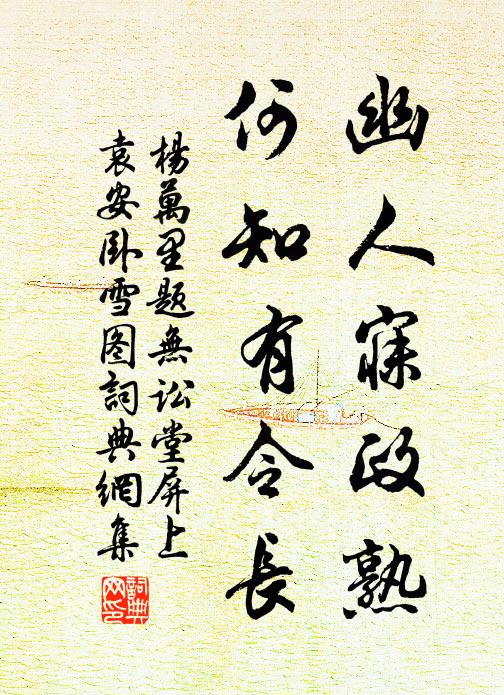 幽人寐政熟
何知有令長
楊萬里題無訟堂屏上
袁安卧雪图詞典網集
詞典網印